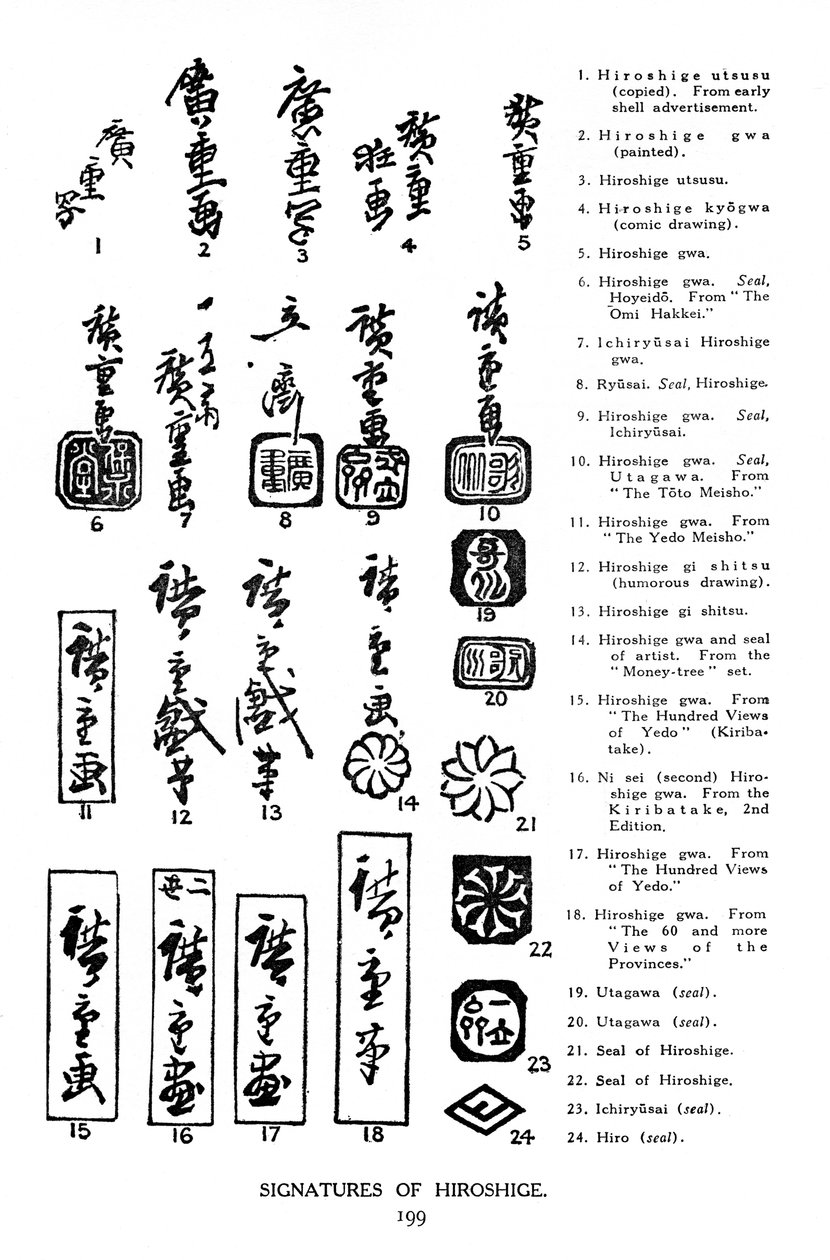 廣重写
1
廣重画
2
廣重写
3
廣重
狂画
4
廣重画
5
廣重画
保永堂
6
一立斎
廣重画
7
立齋
廣重
8
廣重画
9
廣重画
歌川
10
歌川
19
歌川
20
廣重画
11
廣重戯筆
12
廣重戯筆
13
廣重画
14
21
22
23
24
廣重画
15
二世
廣重画
16
廣重画
17
廣重筆
18
1. Hiroshige utsusu
(copied). From early
shell advertisement.
2. Hiroshige gwa
(painted).
3. Hiroshige utsusu.
4. Hiroshige kyōgwa
(comic drawing).
5. Hiroshige gwa.
6. Hiroshige gwa. Seal,
Hoyeidō. From "The
Ōmi Hakkei."
7. Ichiryūsai Hiroshige
gwa.
8. Ryūsai. Seal, Hiroshige.
9. Hiroshige gwa. Seal,
Ichiryūsai.
10. Hiroshige gwa. Seal,
Utagawa. From
"The Tōto Meisho."
11. Hiroshige gwa. From
"The Yedo Meisho."
12. Hiroshige gi shitsu
(humorous drawing).
13. Hiroshige gi shitsu.
14. Hiroshige gwa and seal
of artist. From the
"Money-tree" set.
15. Hiroshige gwa. From
"The Hundred Views
of Yedo" (Kiriba-
take).
16. Ni sei (second) Hiro-
shige gwa. From the
Kiribatake, 2nd
Edition.
17. Hiroshige gwa. From
"The Hundred Views
of Yedo."
18. Hiroshige gwa. From
"The 60 and more
Views of the
Provinces."
19. Utagawa (seal).
20. Utagawa (seal).
21. Seal of Hiroshige.
22. Seal of Hiroshige.
23. Ichiryūsai (seal).
24. Hiro (seal).
SIGNATURES OF HIROSHIGE.
199